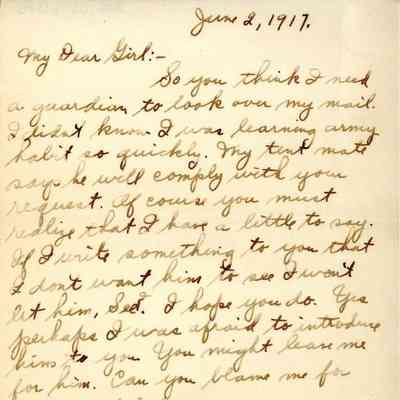 June 2, 1917.
My Dear Girl:-
So you think I need
a guardian to look over my mail.
I didn't know I was learning army
habit so quickly. My tent mate
says he will comply with your
request. Of course you must
realize that I have a little to say.
If I write something to you that
I don't want him to see I won't
let him, See? I hope you do. Yes
perhaps I was afraid to introduce
him to you You might leave me
for him. Can you blame me for